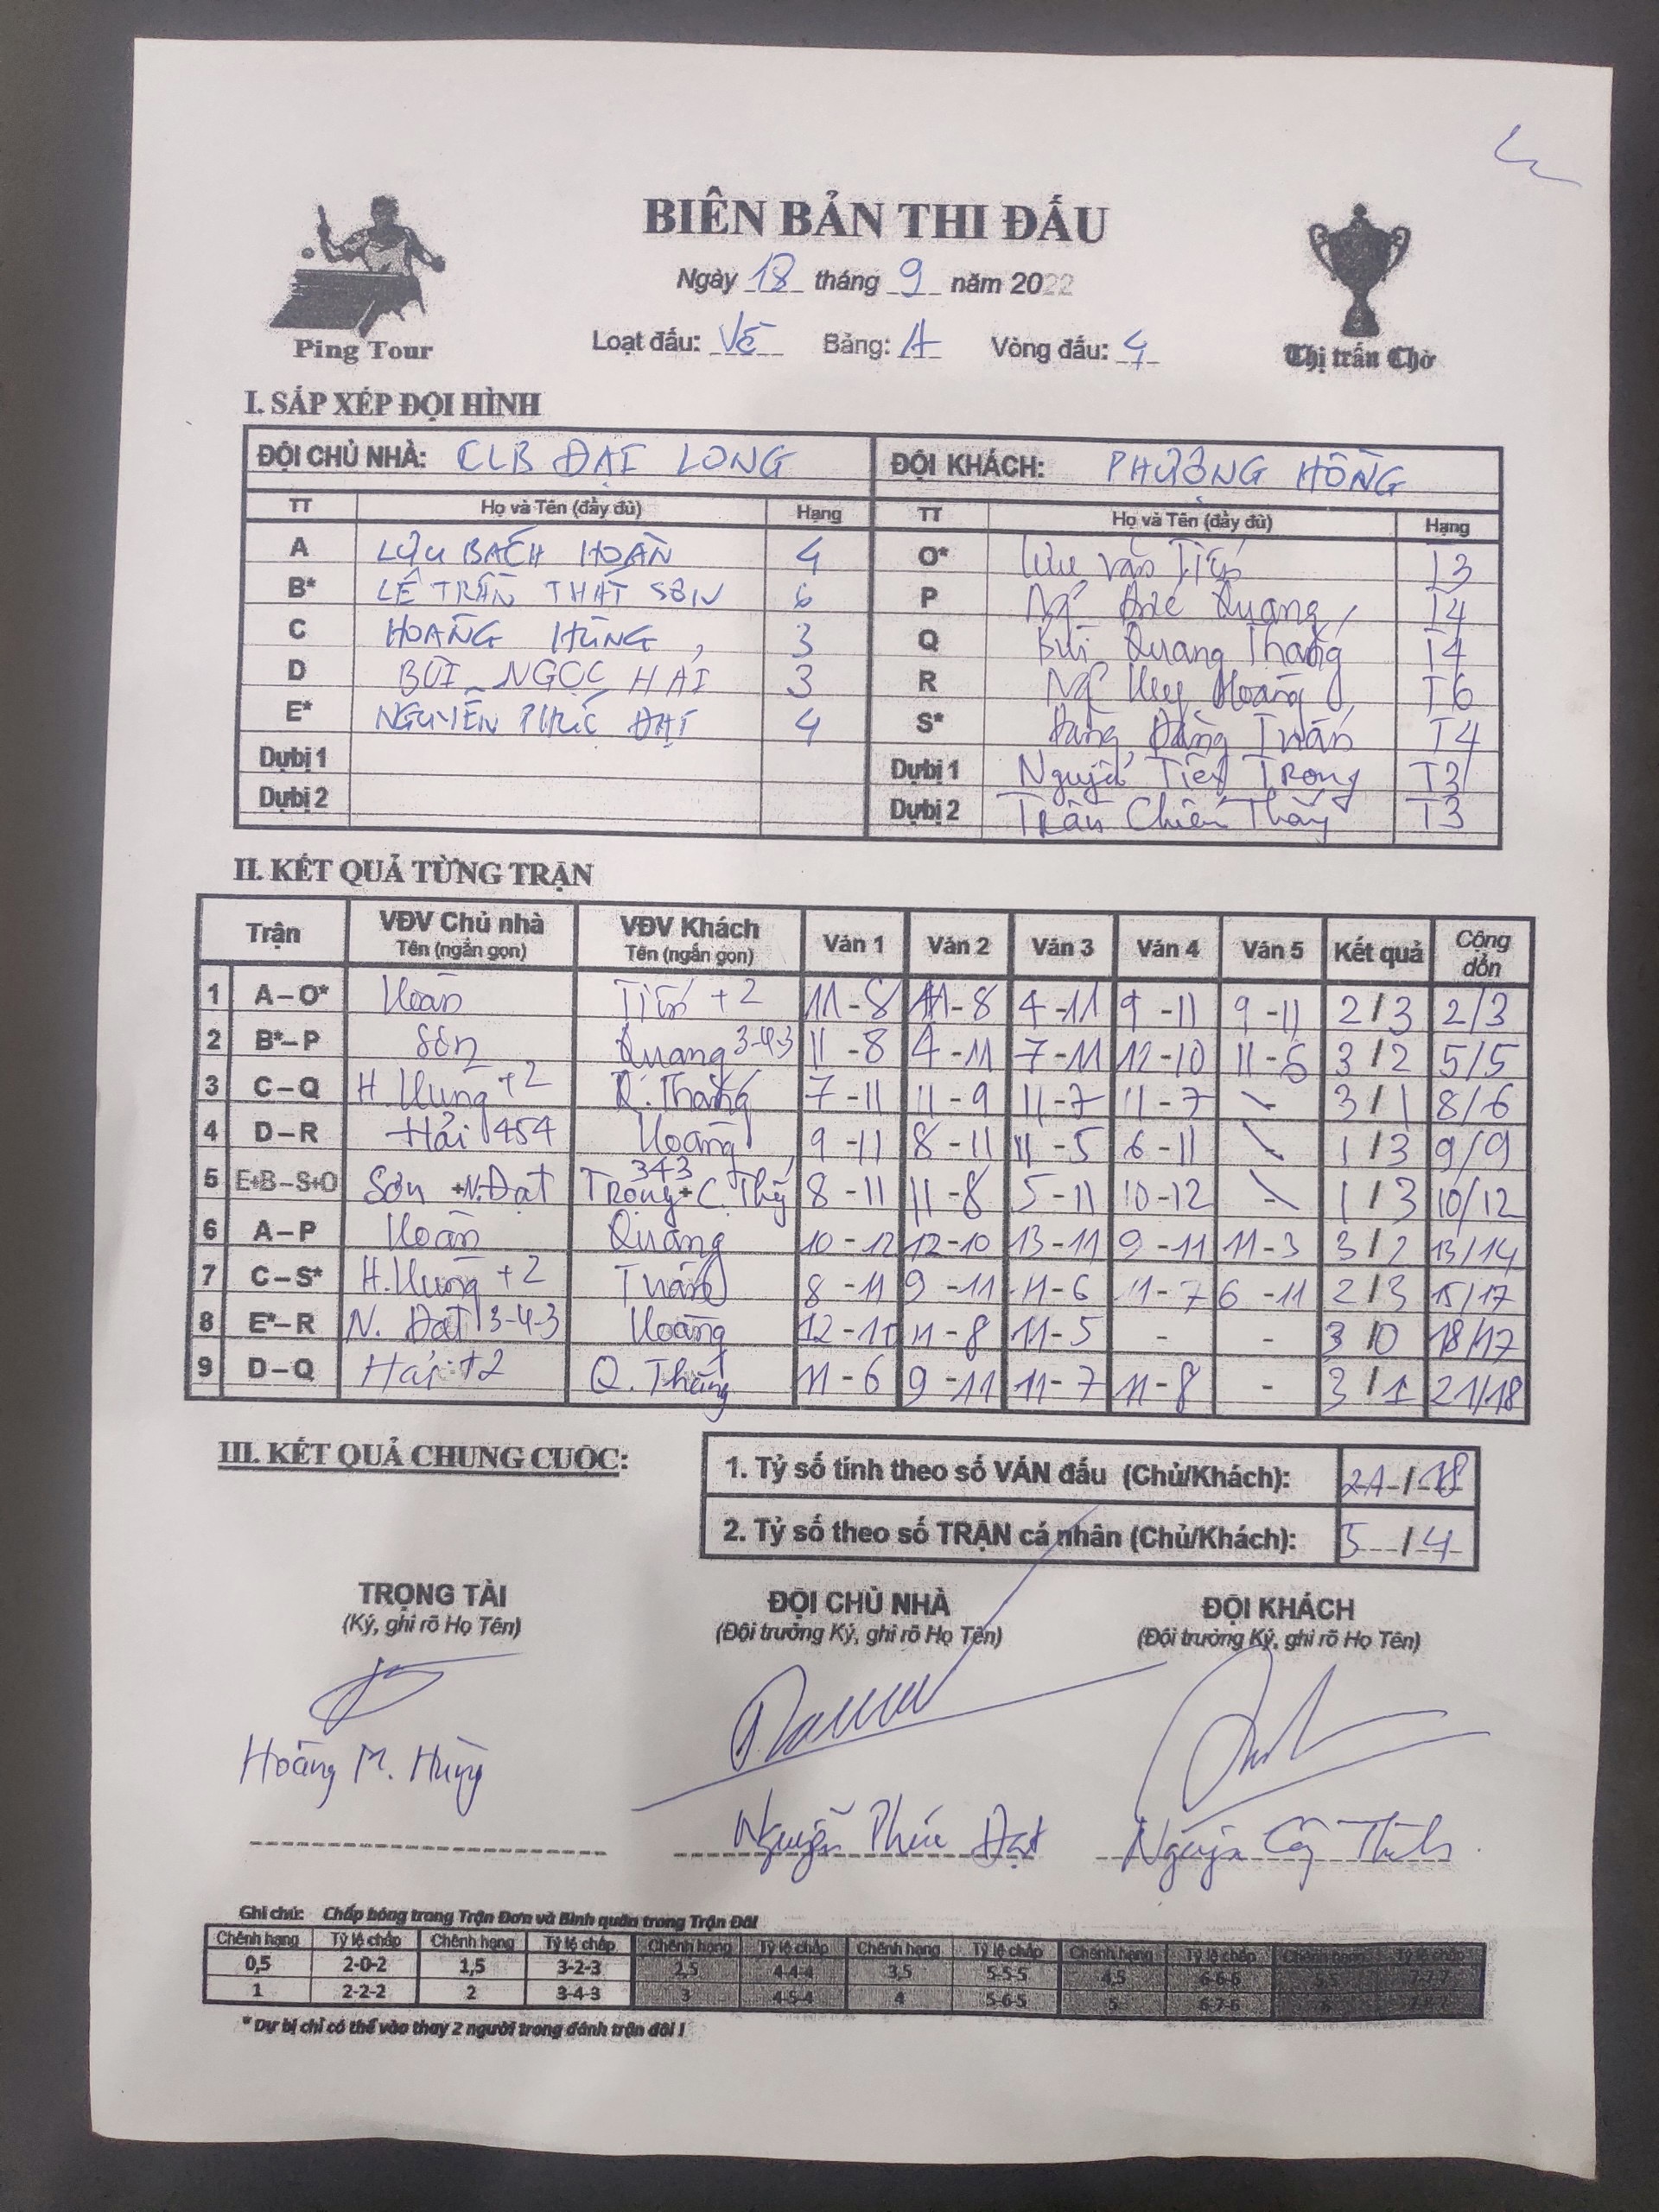 BIÊN BẢN THI ĐẤU
Ngày 18 tháng 9 năm 2022
Ping Tour
Loạt đấu: Về Bảng: A Vòng đấu: 4
Thị trấn Chờ
I. SẮP XẾP ĐỘI HÌNH
ĐỘI CHỦ NHÀ: CLB ĐẠI LONG ĐỘI KHÁCH: PHƯỢNG HỒNG
TT Họ và Tên (đầy đủ) Hạng TT Họ và Tên (đầy đủ) Hạng
A LƯU BÁCH HOÀN 4 O* Lưu Văn Tiến T3
B* LÊ TRẦN THÁI SƠN 6 P Ng Đức Quang T4
C HOÀNG HÙNG 3 Q Bùi Quang Thắng T4
D BÙI NGỌC HẢI 3 R Ng Huy Hoàng T6
E* NGUYỄN PHÚC ĐẠT 4 S* Đặng Đăng Tuấn T4
Dự bị 1 Dự bị 1 Nguyễn Tiến Trọng T3
Dự bị 2 Dự bị 2 Trần Chiến Thắng T3
II. KẾT QUẢ TỪNG TRẬN
Trận VĐV Chủ nhà Tên (ngắn gọn) VĐV Khách Tên (ngắn gọn) Ván 1 Ván 2 Ván 3 Ván 4 Ván 5 Kết quả Cộng dồn
1 A–O* Hoàn Tiến +2 11-8 11-8 4-11 9-11 9-11 2/3 2/3
2 B*–P Sơn Quang 3-4-3 11-8 4-11 7-11 12-10 11-6 3/2 5/5
3 C–Q H. Hùng +2 Q. Thắng 7-11 11-9 11-7 11-7 - 3/1 8/6
4 D–R Hải 454 Hoàng 9-11 8-11 11-5 6-11 - 1/3 9/9
5 E+B–S+O Sơn +N.Đạt 343 Trọng + C. Thắng 8-11 11-8 5-11 10-12 - 1/3 10/12
6 A–P Hoàn Quang 10-12 12-10 13-11 9-11 11-3 3/2 13/14
7 C–S* H. Hùng +2 Tuấn 8-11 9-11 11-6 11-7 6-11 2/3 15/17
8 E*–R N. Đạt 3-4-3 Hoàng 12-10 11-8 11-5 - - 3/0 18/17
9 D–Q Hải +2 Q. Thắng 11-6 9-11 11-7 11-8 - 3/1 21/18
III. KẾT QUẢ CHUNG CUỘC:
1. Tỷ số tính theo số VÁN đấu (Chủ/Khách): 21/18
2. Tỷ số theo số TRẬN cá nhân (Chủ/Khách): 5/4
TRỌNG TÀI ĐỘI CHỦ NHÀ ĐỘI KHÁCH
(Ký, ghi rõ Họ Tên) (Đội trưởng Ký, ghi rõ Họ Tên) (Đội trưởng Ký, ghi rõ Họ Tên)
Hoàng M. Hùng
Nguyễn Phúc Đạt Nguyễn
Ghi chú: Chấp bóng trong Trận Đơn và Bình quân trong Trận Đôi
Chênh hạng Tỷ lệ chấp Chênh hạng Tỷ lệ chấp Chênh hạng Tỷ lệ chấp Chênh hạng Tỷ lệ chấp Chênh hạng Tỷ lệ chấp Chênh hạng Tỷ lệ chấp
0,5 2-0-2 1,5 3-2-3 2,5 4-4-4 3,5 5-5-5 4,5 6-6-6 5,5 7-7-7
1 2-2-2 2 3-4-3 3 4-5-4 4 5-6-5 5 6-7-6 6 7-8-7
* Dự bị chỉ có thể vào thay 2 người trong đánh trận đôi !